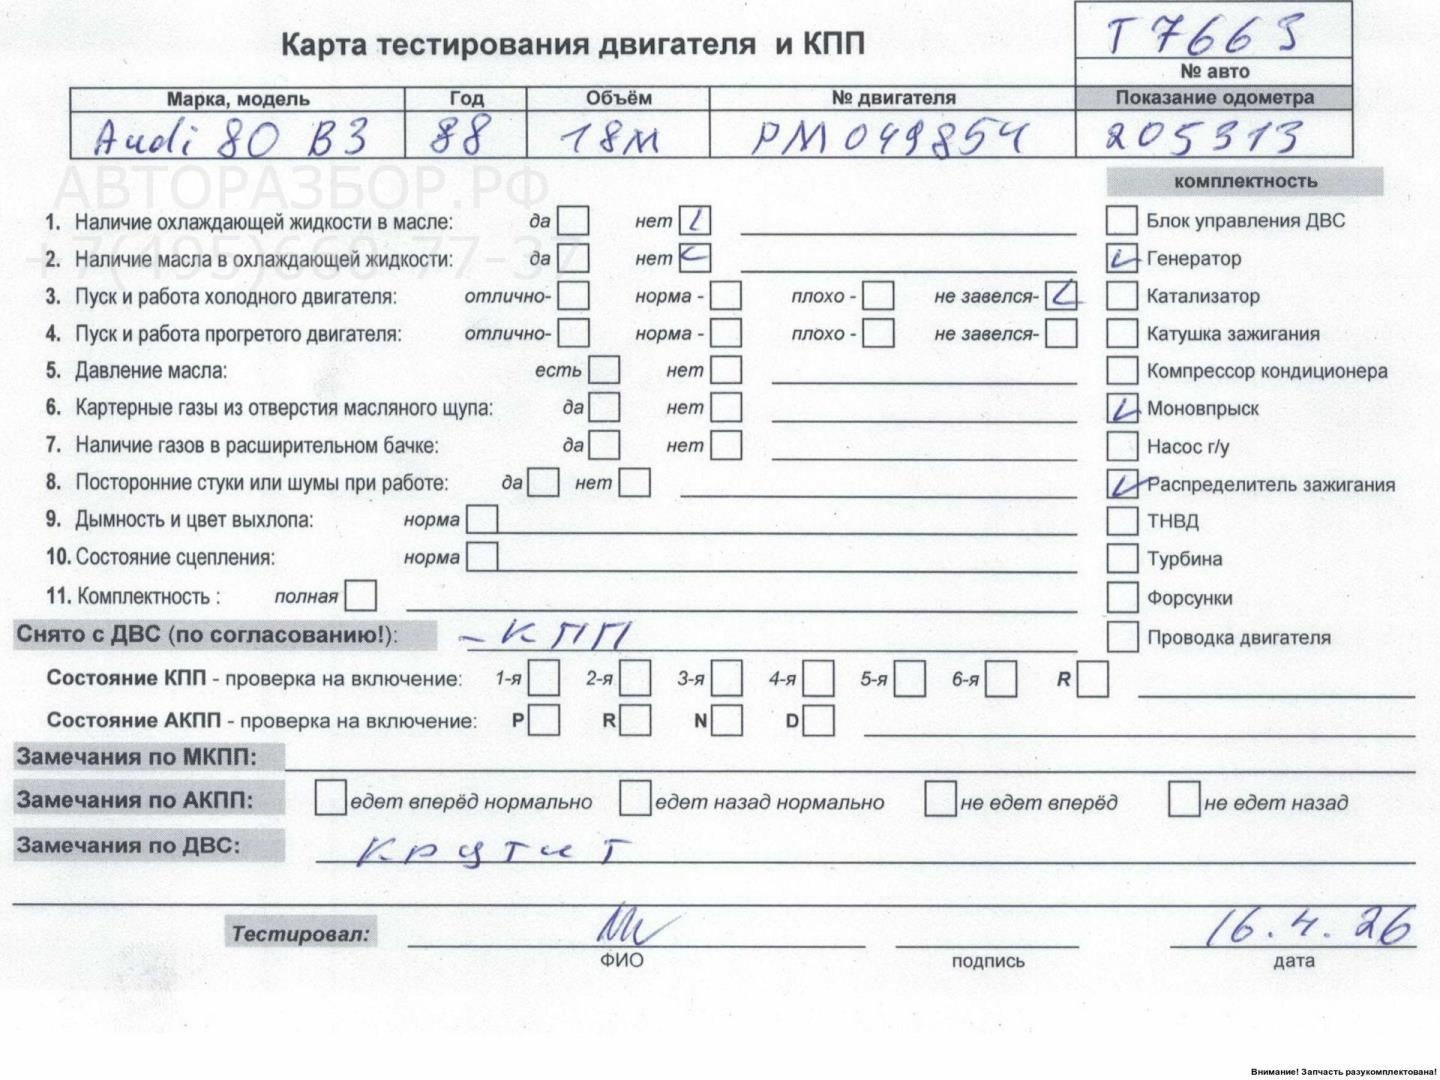 Т7663
Карта тестирования двигателя и КПП
№ авто
Марка, модель Год Объём № двигателя Показание одометра
Audi 80 B3 88 18М РМ 049854 205313
АВТОРАЗБОР.РФ
комплектность
1. Наличие охлаждающей жидкости в масле: да нет Блок управления ДВС
+7(495)660-77-37
2. Наличие масла в охлаждающей жидкости: да нет Генератор
3. Пуск и работа холодного двигателя: отлично- норма - плохо - не завелся- Катализатор
4. Пуск и работа прогретого двигателя: отлично- норма - плохо - не завелся- Катушка зажигания
5. Давление масла: есть нет Компрессор кондиционера
6. Картерные газы из отверстия масляного щупа: да нет Моновпрыск
7. Наличие газов в расширительном бачке: да нет Насос г/у
8. Посторонние стуки или шумы при работе: да нет Распределитель зажигания
9. Дымность и цвет выхлопа: норма ТНВД
10. Состояние сцепления: норма Турбина
11. Комплектность : полная Форсунки
Снято с ДВС (по согласованию!): - КПП Проводка двигателя
Состояние КПП - проверка на включение: 1-я 2-я 3-я 4-я 5-я 6-я R
Состояние АКПП - проверка на включение: P R N D
Замечания по МКПП:
Замечания по АКПП: едет вперёд нормально едет назад нормально не едет вперёд не едет назад
Замечания по ДВС: Крутит
Тестировал: 16.4.26
ФИО подпись дата
Внимание! Запчасть разукомплектована!